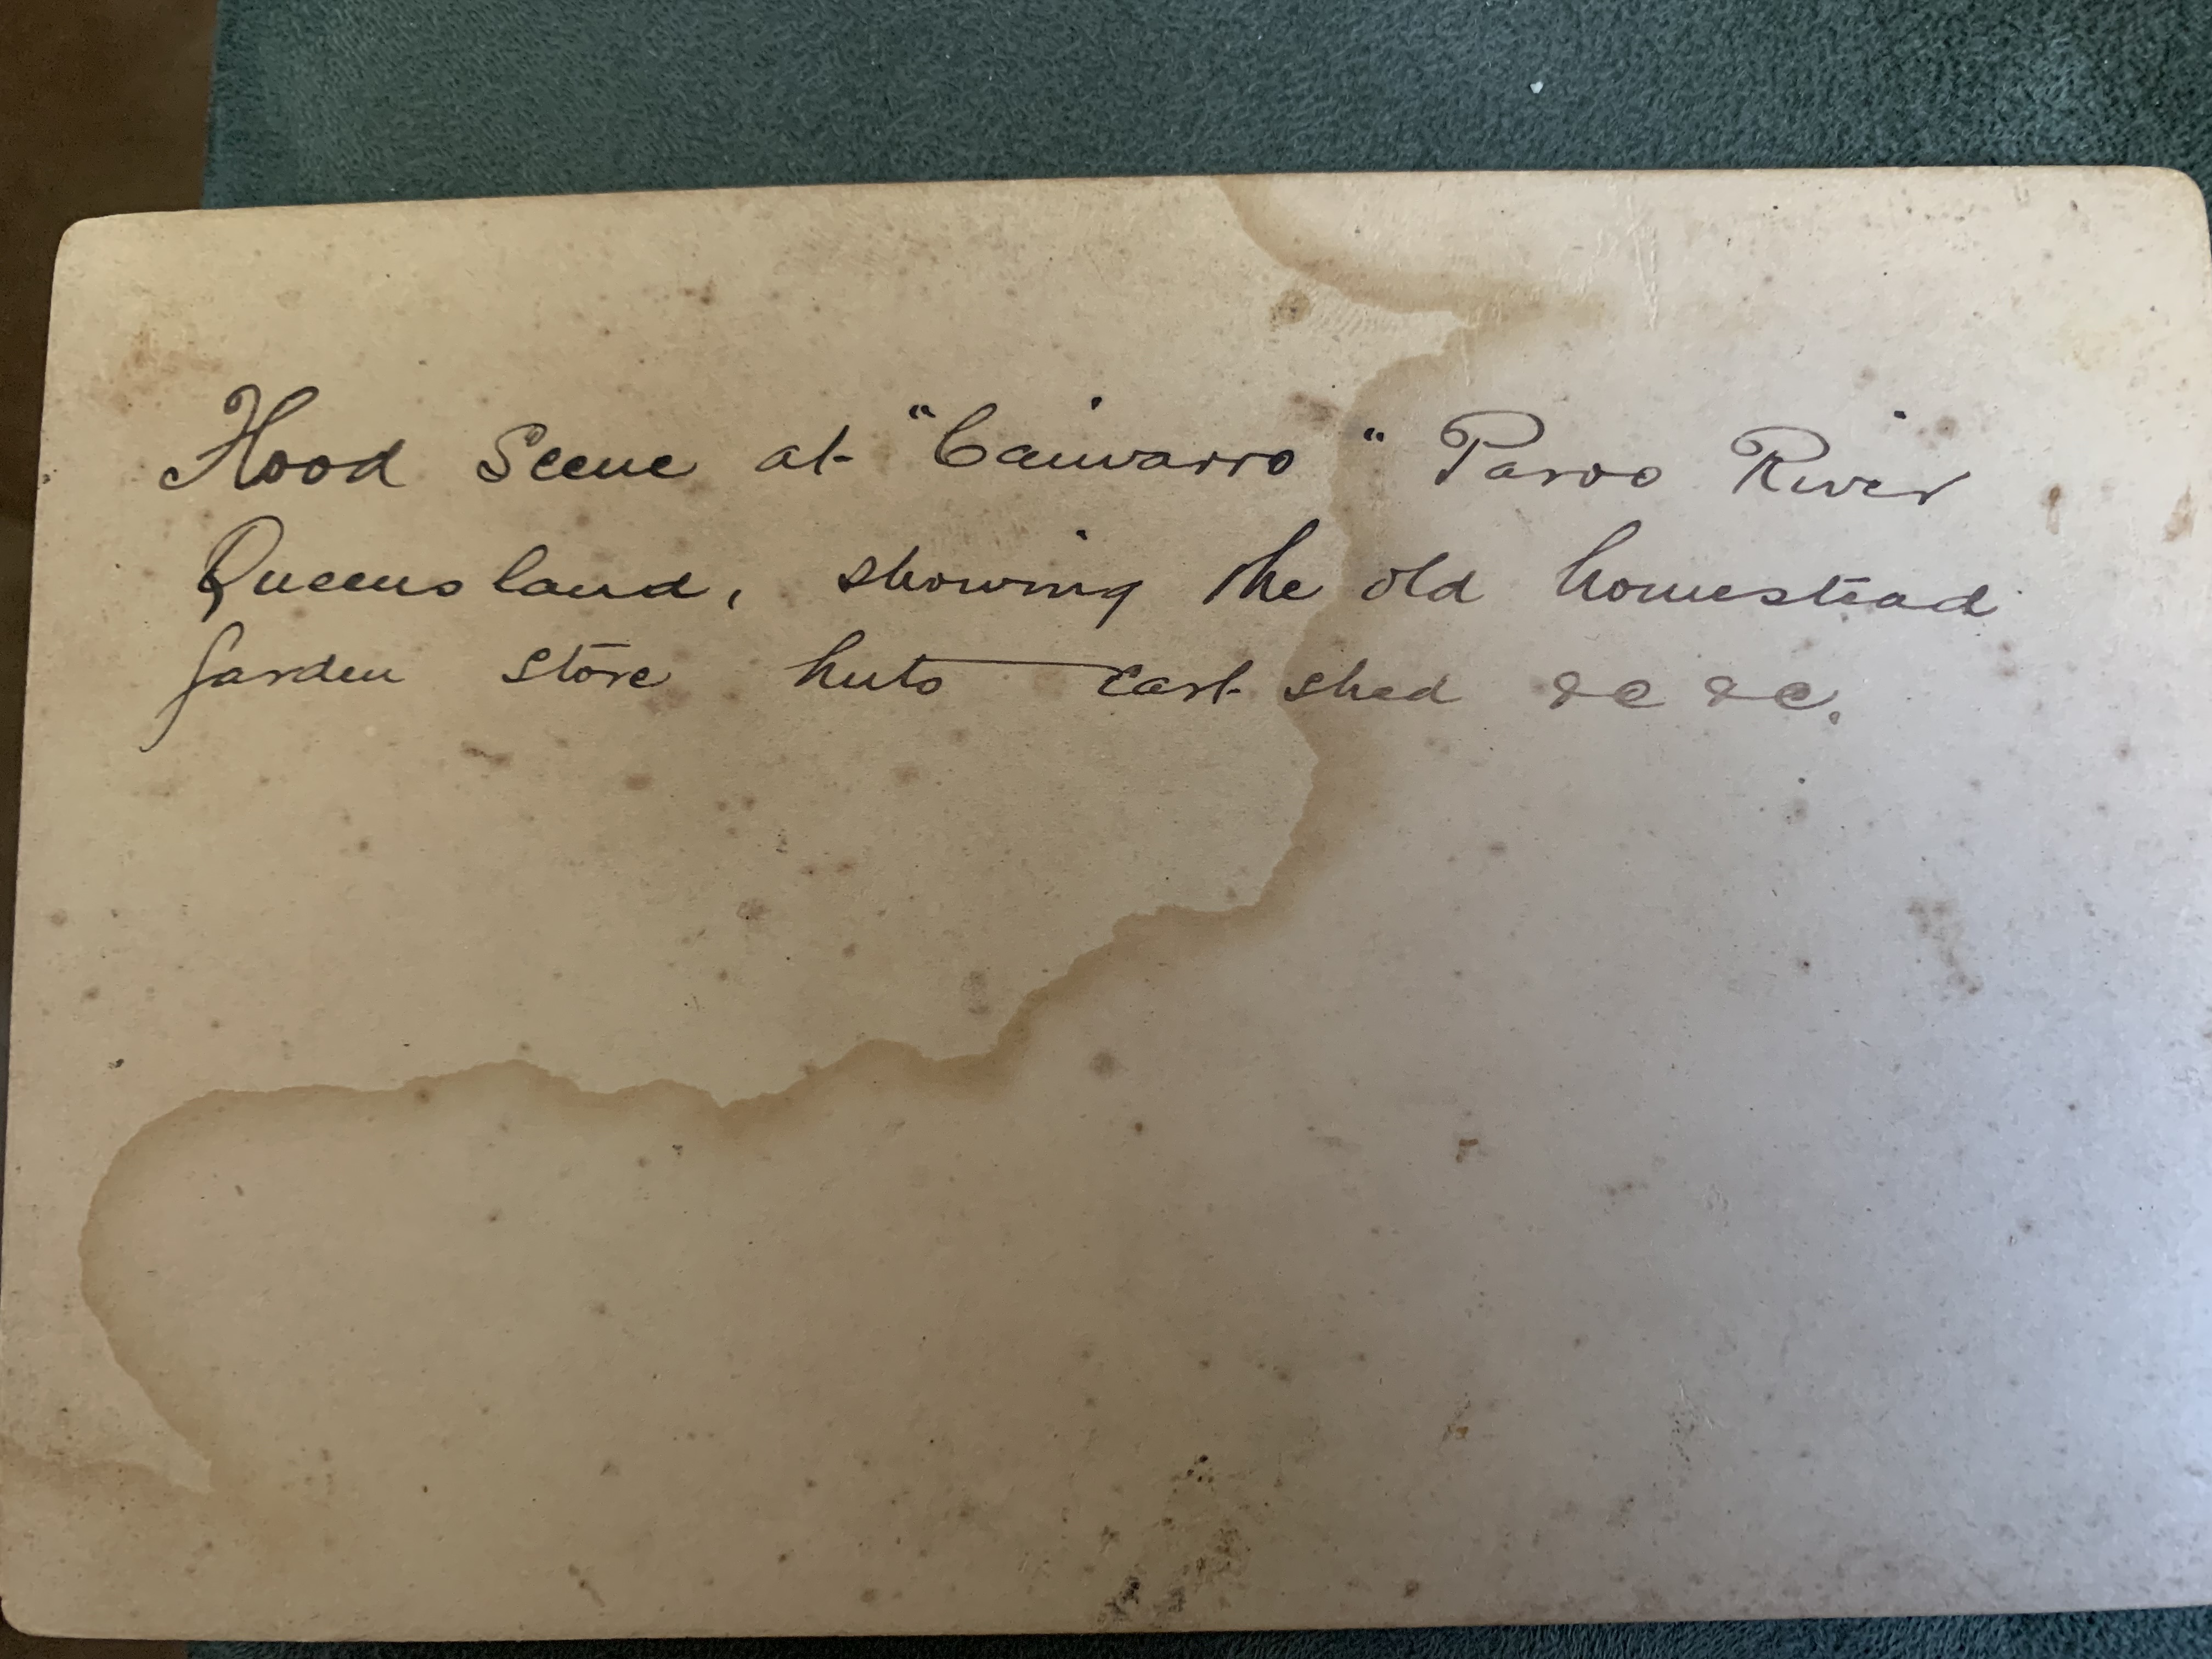 Flood Scene at "Caiwarro" Paroo River
Queensland, showing the old homestead
garden store huts cart shed &c &c.